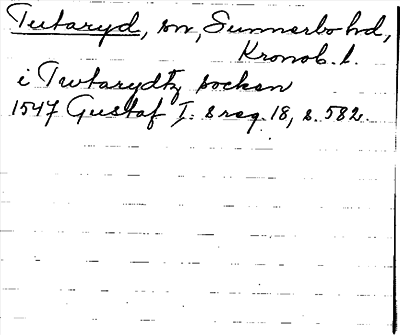 Tutaryd, sn, Sunnerbo hd,
Kronob. l.
i Twtarydtz socken
1547 Gustaf I:s reg. 18, s. 582.